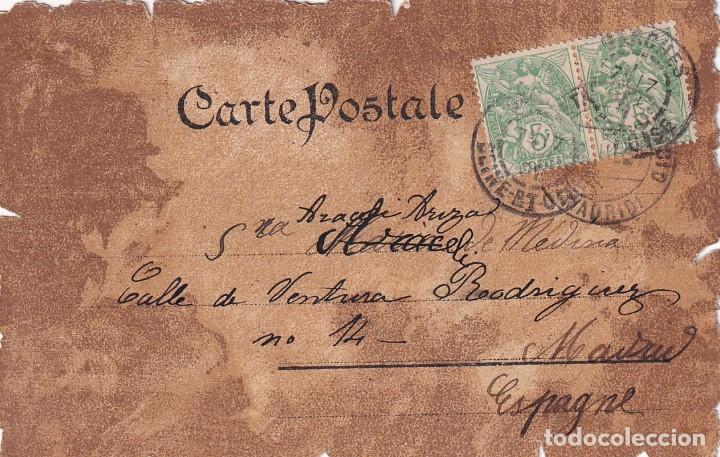 Carte Postale
5
SEINE-ET-O
MADRID
Sra Araceli Ariza
de Medina
Calle de Ventura Rodriguez
no 14 -
Madrid
Espagne
todocoleccion